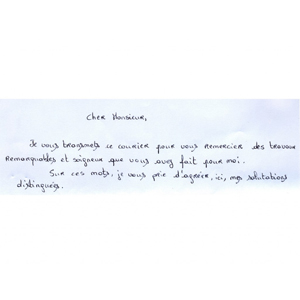 Cher Monsieur,
Je vous transmets ce courrier pour vous remercier des travaux
Remarquables et soigneux que vous avez fait pour moi.
Sur ces mots, je vous prie d'agréer, ici, mes salutations
distinguées.